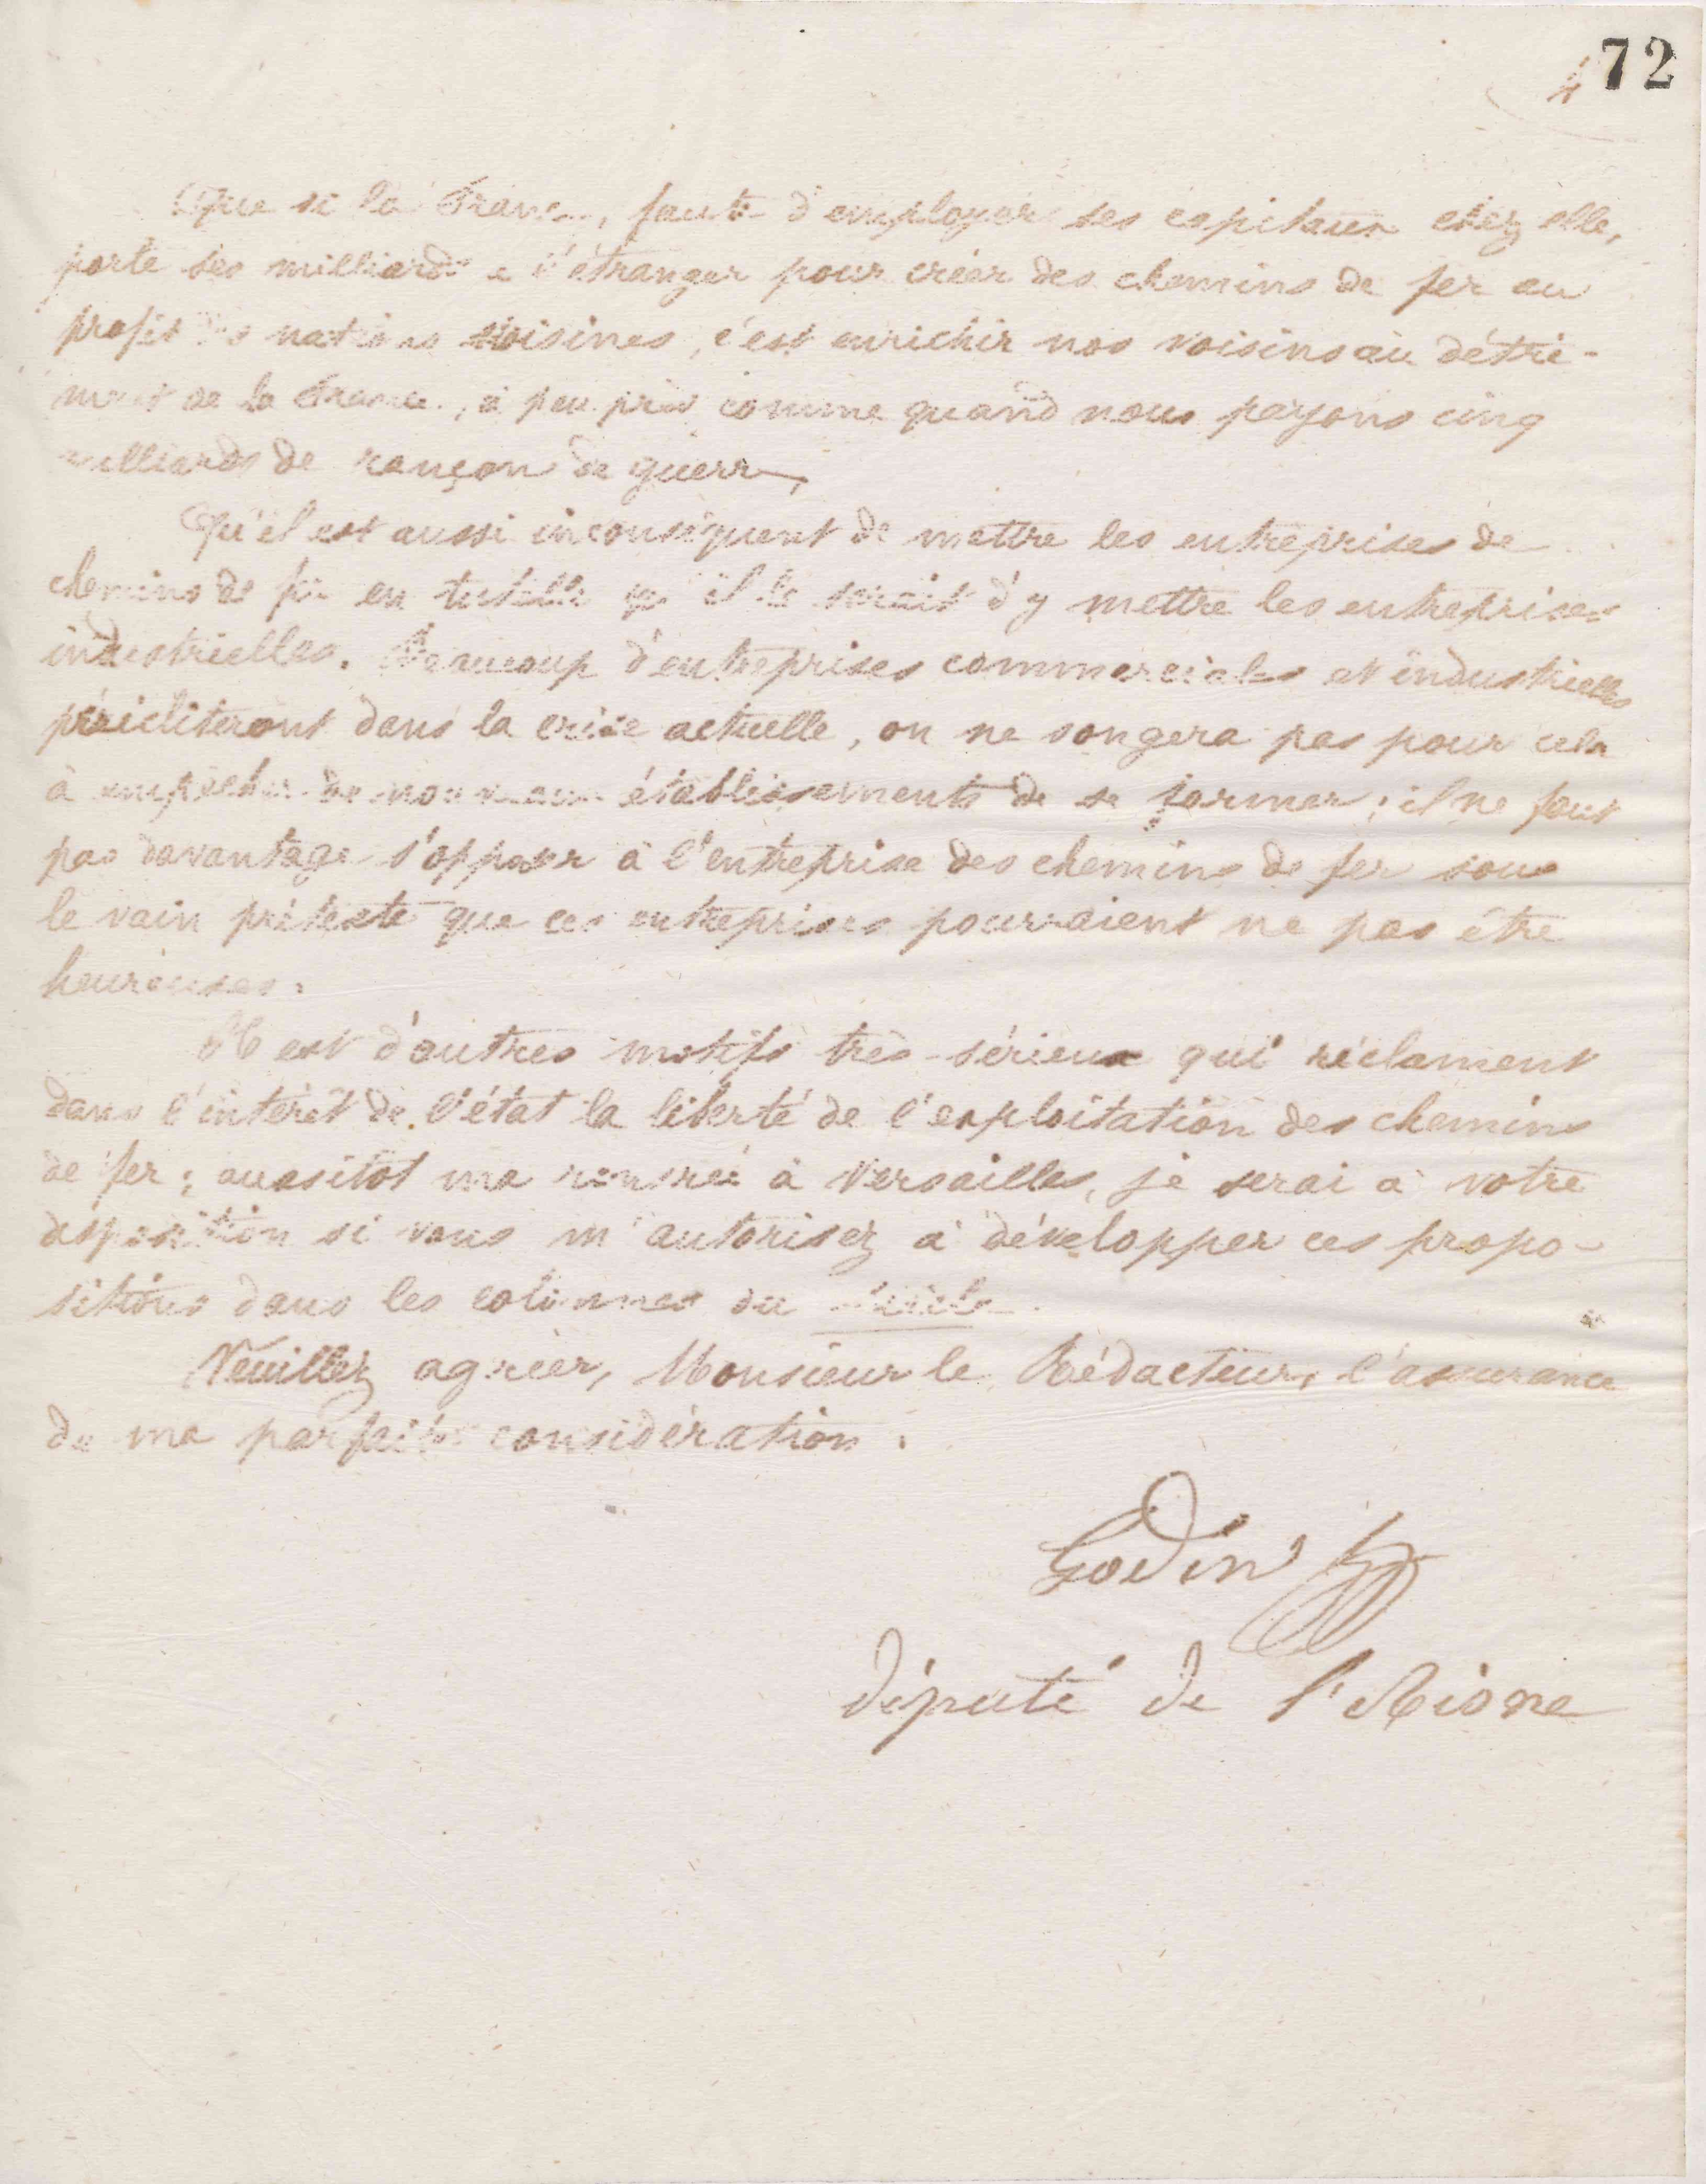 4 72
Que si la France, faute d'employer ses capitaux chez elle,
porte ses milliards a l'étranger pour créer des chemins de fer au
profit des nations voisines, c'est enrichir nos voisins au détri-
ment de la France, à peu près comme quand nous payons cinq
milliards de rançon de guerre,
Qu'il est aussi inconséquent de mettre les entreprises de
chemins de fer en tutelle qu'il le serait d'y mettre les entreprises
industrielles. Beaucoup d'entreprises commerciales et industrielles
péricliteront dans la crise actuelle, on ne songera pas pour cela
à empêcher de nouveaux établissements de se former; il ne faut
pas davantage s'opposer à l'entreprise des chemins de fer sous
le vain prétexte que ces entreprises pourraient ne pas être
heureuses.
Il est d'autres motifs très-sérieux qui réclament
dans l'intérêt de l'état la liberté de l'exploitation des chemins
de fer; aussitôt ma rentrée à Versailles, je serai à votre
disposition si vous m'autorisez à développer ces propo-
sitions dans les colonnes du Siècle.
Veuillez agréer, Monsieur le Rédacteur, l'assurance
de ma parfaite considération.
Godin
député de l'Aisne